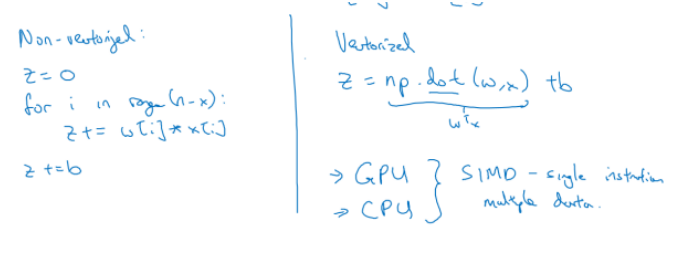 Non-vectorized:
z = 0
for i in range(n-x):
z += w[i] * x[i]
z += b
Vectorized
z = np.dot(w,x) + b
wᵀx
→ GPU } SIMD - single instruction
→ CPU multiple data.